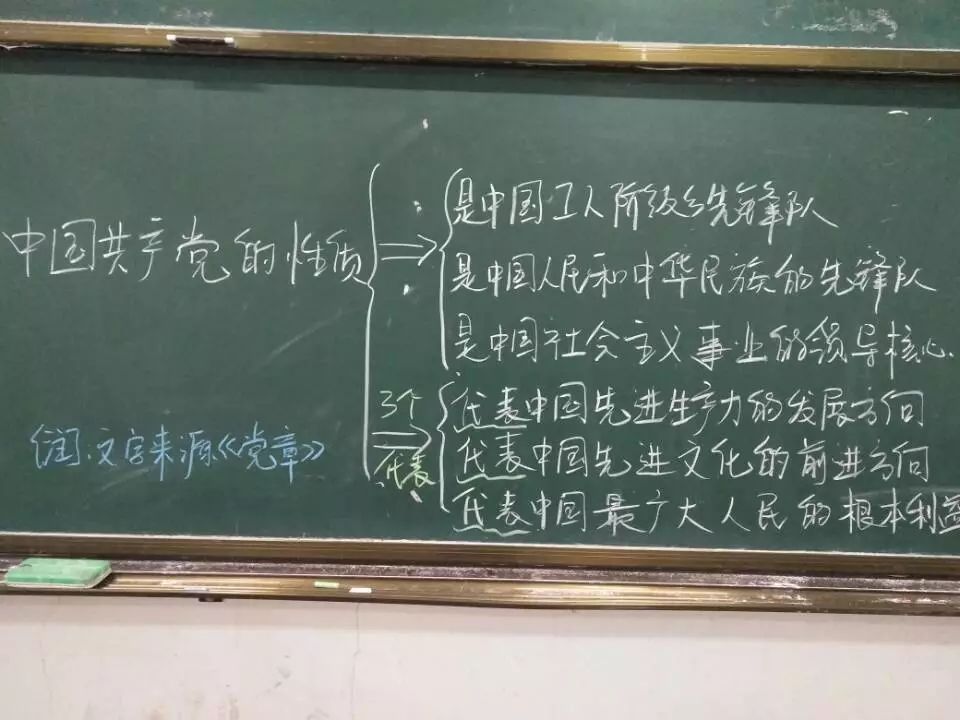 中国共产党的性质
是中国工人阶级的先锋队
是中国人民和中华民族的先锋队
是中国社会主义事业的领导核心.
3个
代表
代表中国先进生产力的发展方向
代表中国先进文化的前进方向
代表中国最广大人民的根本利益
文字来源《党章》